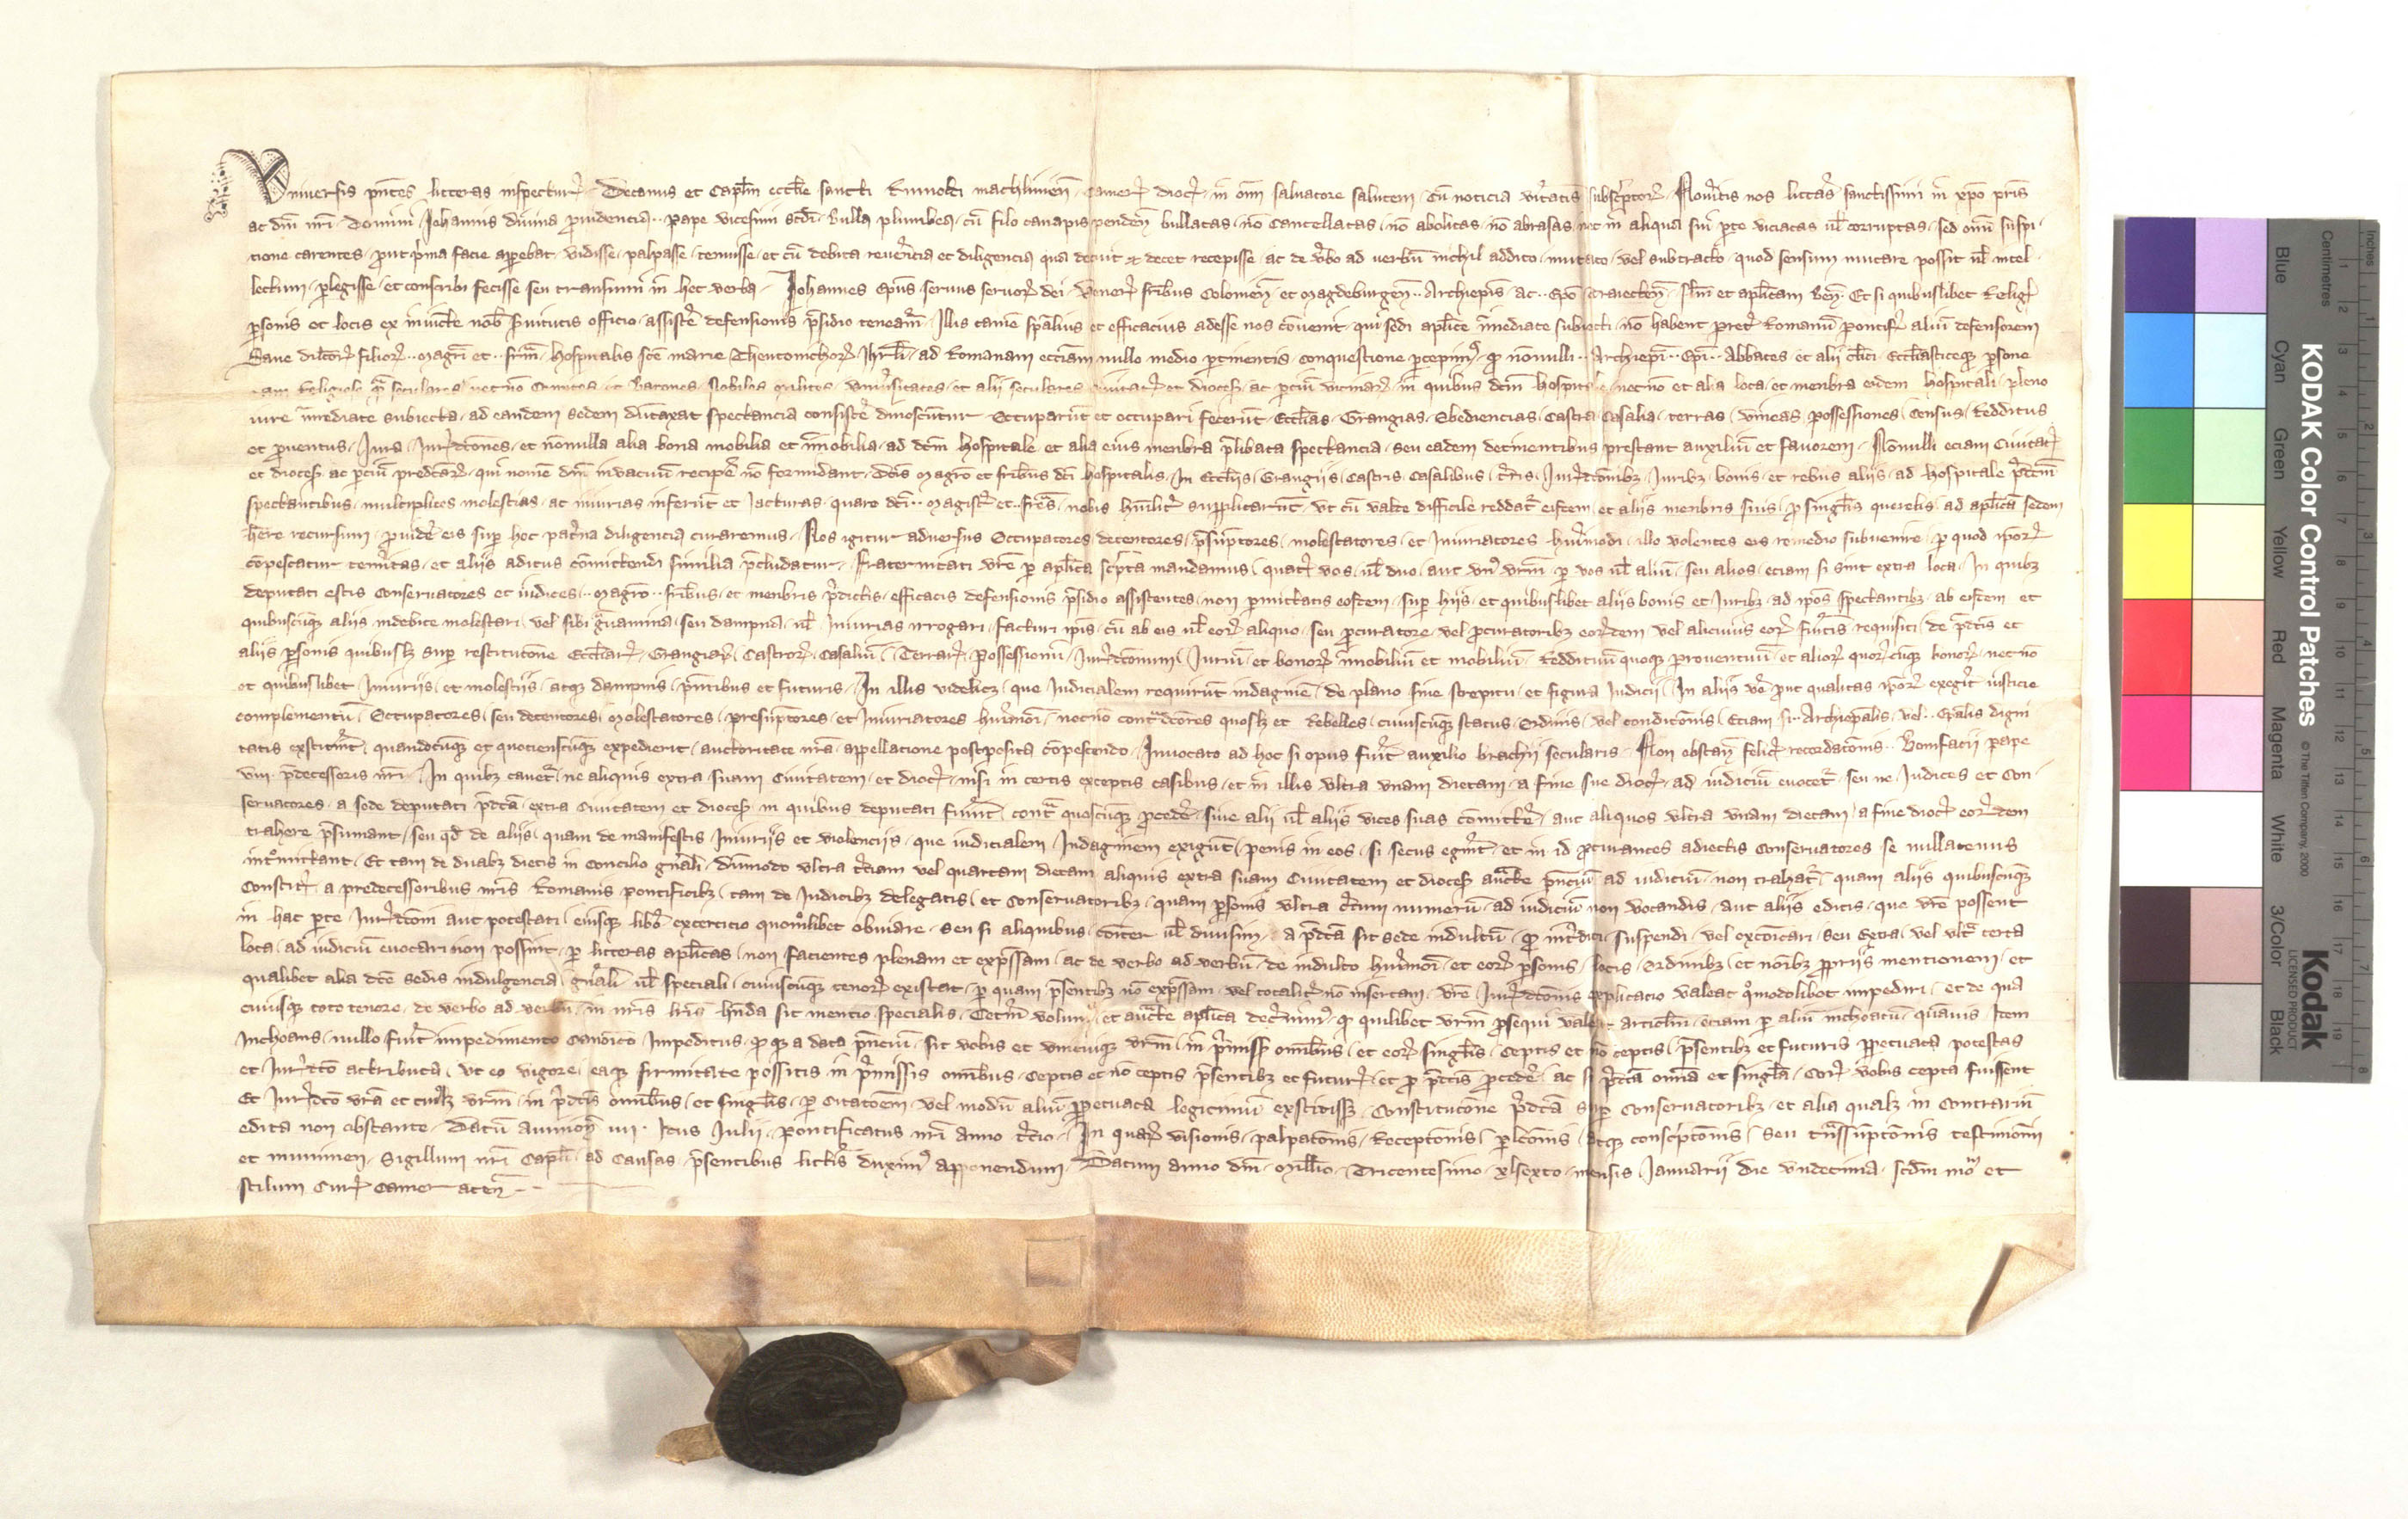 Universis pntes litteras inspectur Decanus et Caplm ecclie sancti Rumoldi machlinien Camer dioc in omi salvatore salutem cu noticia vitatis subscptor Noveritis nos litteras sanctissimi in xpo pris
ac dni nri domini Johannis divina providencia pape vicesimi scdi Bulla plumbea cu filo canapis penden bullatas no Cancellatas no abolitas no abrasas nec in aliqua sui pte viciatas ul corruptas sed omi suspi
cione carentes prout prima facie apparebat vidisse palpasse tenuisse et cu debita reverencia et diligencia qua decuit et decet recepisse ac de vbo ad verbu nichil addito mutato vel subtracto quod sensum mutare possit ul intel
lectum plegisse et conscribi fecisse seu transumi in hec verba Johannes Epus servus servor dei Vener fribus Colonien et Magdeburgen Archiepis ac Epo Traiecten slm et aplicam ben Et si quibuslibet Religi
psonis et locis ex iniuncte nob servitutis officio assiste defensionis psidio teneamur Illis tame spalius et efficacius adesse nos convenit qui sedi aplice imediate subiecti no habent preter Romanu pontific aliu defensorem
Sane dilcor filior magri et frm hospitalis sce marie Theutonichor Jhrlt ad Romanam eccliam nullo medio ptinentis conquestione pcepimus q nonnulli Archiepi Epi Abbates et alii clici Ecclesiasticeque psone
tam Religiose qua seculares necno Comites et Barones Nobiles Milites universitates et alii seculares Civitat et dioces ac pciu vicinar in quibus dcm hospitale necno et alia loca et menbra eidem hospitali pleno
iure imediate subiecta ad eandem sedem dutaxat spectancia consiste dinoscuntur Occuparut et occupari fecerut Ecclias Grangias Obediencias Castra Casalia terras vineas possessiones Census Redditus
et proventus Jura Jurdcones et nonulla alia bona mobilia et imobilia ad dcm hospitale et alia eius menbra plibata spectancia seu eadem detinentibus prestant auxiliu et favorem Nonulli eciam Civitat
et dioces ac pciu predcar qui nome dni invacuu recipe no formidant dcis Magro et fribus dci hospitalis In Eccliis Grangiis Castris Casalibus tris Jurdconibz Juribz bonis et rebus aliis ad hospitale pdcm
spectantibus multiplices molestias ac iniurias inferut et Jacturas quare dci Magist et fres nobis humilit supplicarut ut cu valde difficile reddat eisdem et aliis menbris suis p singlis querelis ad aplica sedem
here recursum provide eis sup hoc paterna diligencia curaremus Nos igitur adversus Occupatores detentores psuptores molestatores et Iniuriatores huimodi illo volentes eis remedio subvenire p quod ipor
copescatur temeritas et aliis aditus comittendi similia pcludatur fraternitati vre p aplica scpta mandamus quat vos ul duo aut un vrm p vos ul aliu seu alios eciam si sint extra loca In quibz
deputati estis conservatores et iudices Magro fribus et menbris pdictis efficacis defensionis psidio assistentes non pmittatis eosdem sup hiis et quibuslibet aliis bonis et Juribz ad ipos spectantibz ab eisdem et
quibuscuqz aliis indebite molestari vel sibi gravamina seu dampna ul Iniurias irrogari facturi ipis cu ab eis ul eor aliquo seu pcuratore vel pcuratoribz eordem vel alicuius eor fueritis requisiti de pdcis et
aliis psonis quibuslz sup restitutione Eccliar Grangiar Castror Casaliu Terrar possessionu Jurdconum Juriu et bonor imobiliu et mobiliu Reddituu quoqz proventuu et alior quorcuqz bonor necno
et quibuslibet Iniuriis et molestiis atqz dampnis pntibus et futuris In illis videlicz que Judicialem requirut indagine de plano sine strepitu et figura Judicii In aliis vo put qualitas ipor exegit iusticie
complementu Occupatores seu detentores Molestatores presuptores et Iniuriatores huimoi necno contradcores quoslz et rebelles cuiuscuqz status Ordinis vel condiconis Eciam si Archiepalis vel Epalis digni
tatis exstitint quandocuqz et quocienscuqz expedierit auctoritate nra appellacione postposita copescendo Invocato ad hoc si opus fuerit auxilio brachii secularis Non obstan felic recordaconis Bonifacii pape
viii pdecessoris nri In quibz cavet ne aliquis extra suam Civitatem et dioc nisi in certis exceptis casibus et in illis ultra unam dietam a fine sue dioc ad iudiciu evocet seu ne Judices et Con
servatores a sede deputati pdca extra Civitatem et dioces in quibus deputati fuerint contra quoscuqz pcede sive alii ul aliis vices suas comitte aut aliquos ultra unam dietam a fine dioc eordem
trahere psumant seu qd de aliis quam de manifestis Iniuriis et violenciis que iudicialem Indaginem exigut penis in eos si secus egerint et in id pcurantes adiectis Conservatores se nullatenus
intromittant Et tam de duabz dietis in Concilio gnali dummodo ultra tciam vel quartam dietam aliquis extra suam Civitatem et dioces aucte pnciu ad iudiciu non trahat quam aliis quibuscuqz
Constit a predecessoribus nris Romanis pontificibz tam de Judicibz delegatis et Conservatoribz quam psonis ultra ctum numeru ad iudiciu non vocandis aut aliis editis que vre possent
in hac pte Jurdconi aut potestati eiusqz libero exercicio quomolibet obviare Seu si aliquibus coiter ul divisim a pdca sit sede indultu q intdici suspendi vel excoicari seu Extra vel ultra certa
loca ad iudiciu evocari non possint p litteras aplicas non facientes plenam et expssam ac de verbo ad verbu de indulto huimoi et eor psonis locis Ordinibz et noibz ppriis mentionem et
qualibet alia dce sedis indulgencia gnali ul speciali cuiuscuqz tenor existat p quam psentibz no expssam vel totalit no insertam vre Jurdconis explicatio valeat qomodolibet impediri et de qua
cuiusqz toto tenore de verbo ad verbu in nris lris hnda sit mentio specialis Cetm volum et aucte aplica decernim q quilibet vrm psequi valeat articlm eciam p aliu inchoatu quavis Idem
inchoans nullo fuerit impedimento Canoico impeditus q qz a data pnciu sit vobis et unicuiqz vrm in pmissis omnibus et eor singlis Ceptis et no ceptis psentibz et futuris ppetuata potestas
et Jurdco attributa ut eo vigore eaqz firmitate possitis in pmissis omnibus Ceptis et no ceptis psentibz et futur et p pdcis pcede ac si pdca omia et singla Cor vobis cepta fuissent
Et Jurdco vra et cuiuslz vrm in pdcis omnibus et singlis p Citatoem vel modu aliu ppetuata legitimu exstitissz Constitucone pdca sup Conservatoribz et alia qualz in Contrariu
edita non obstante Datu Avinion iiii Idus Julii pontificatus nri anno tcio In quar visionis palpatonis Receptonis plconis atqz conscptonis seu tnssuptonis testimoni
et munimen Sigillum nri Capli ad Causas psentibus littis duxim apponendum Datum anno dni Millio Tricentesimo xlsexto mensis Januarii die undecima scdm mo et
stilum Cur Camer acen
KODAK Color Control Patches
© The Tiffen Company, 2000
Kodak
LICENSED PRODUCT
Blue Cyan Green Yellow Red Magenta White 3/Color Black
Inches 1 2 3 4 5 6 7 8
Centimetres 1 2 3 4 5 6 7 8 9 10 11 12 13 14 15 16 17 18 19